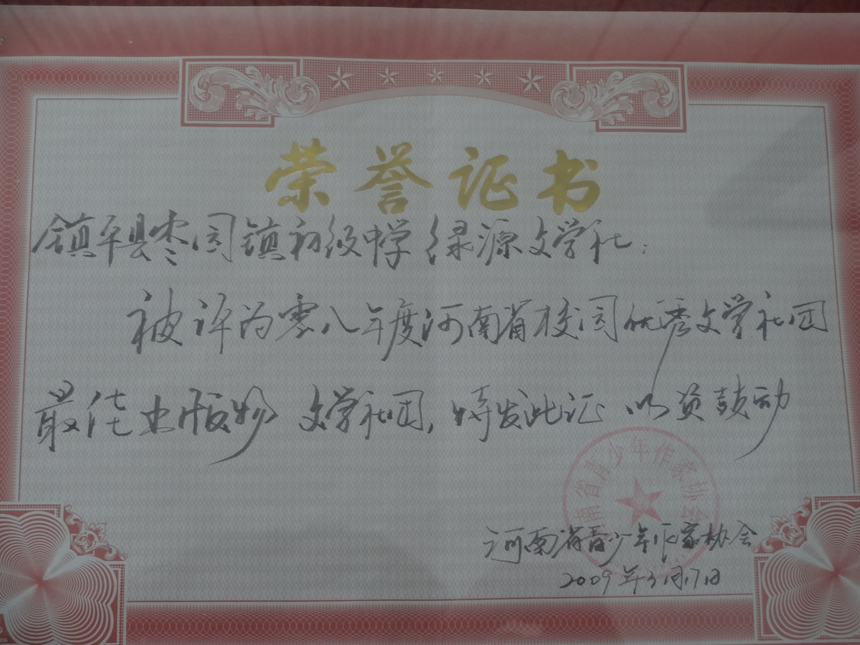 荣誉证书
镇平县枣园镇初级中学绿源文学社：
被评为零八年度河南省校园优秀文学社团
最佳出版物文学社团，特发此证 以资鼓动
河南省青少年作家协会
河南省青少年作家协会
2009年3月17日